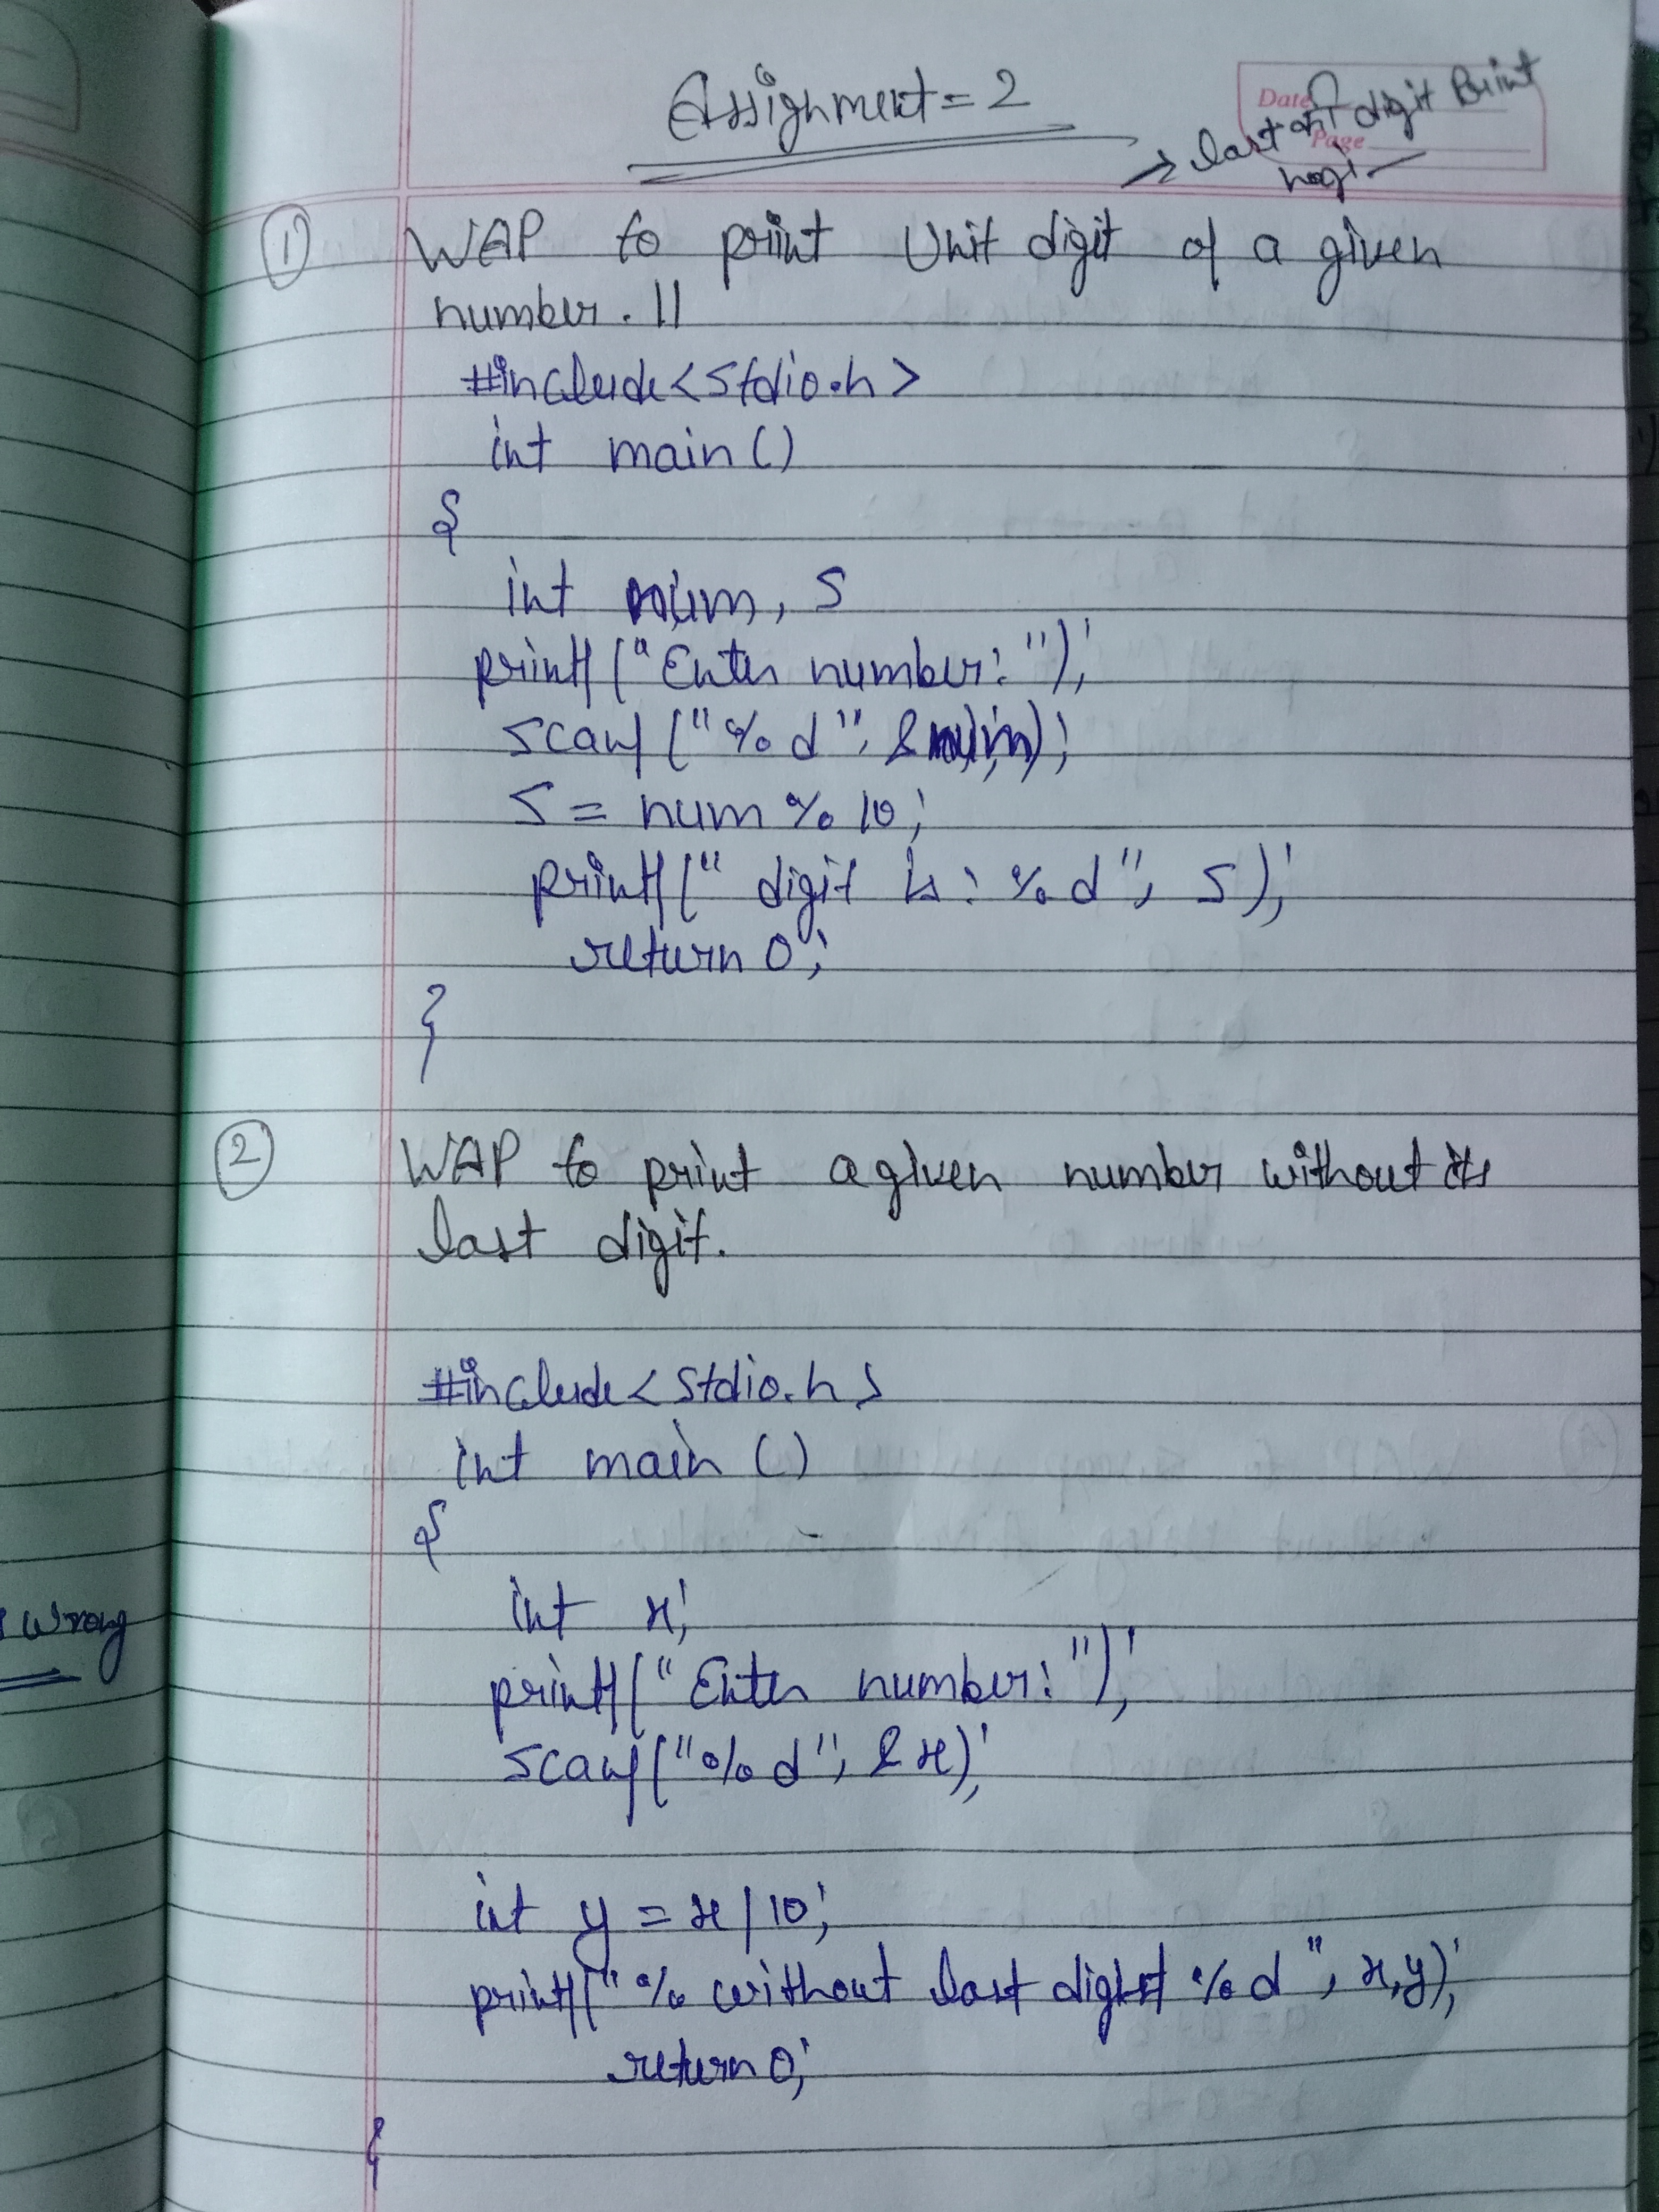 Assignment = 2
Date
Page
→ last का digit Print
hogi
① WAP to print Unit digit of a given
number. ||
#include<stdio.h>
int main()
{
int num, S
printf("Enter number: ");
scanf("%d", &num);
S = num % 10;
printf(" digit is : %d", S);
return 0;
}
② WAP to print a given number without its
last digit.
#include<stdio.h>
int main ()
{
int x;
printf("Enter number: ");
scanf("%d", &x);
int y = x/10;
printf("% without last digit %d", x,y);
return 0;
}
wrong